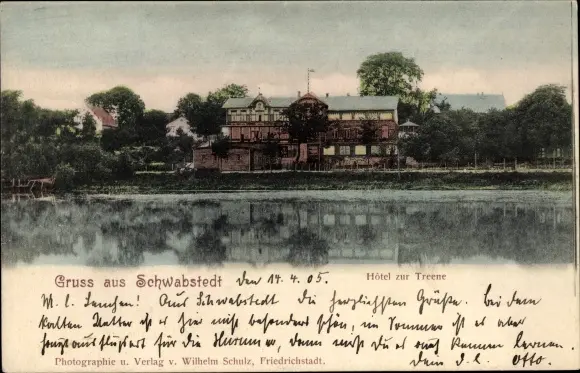 Gruss aus Schwabstedt den 14. 4. 05. Hôtel zur Treene
M. l. Lenchen! Aus Schwabstedt die herzlichsten Grüße. Bei dem
kalten Wetter ist es hier nicht besonders schön, im Sommer ist es aber
für die Husumer, dann mußt du es auch kennen lernen.
Photographie u. Verlag v. Wilhelm Schulz, Friedrichstadt.
dein Otto.